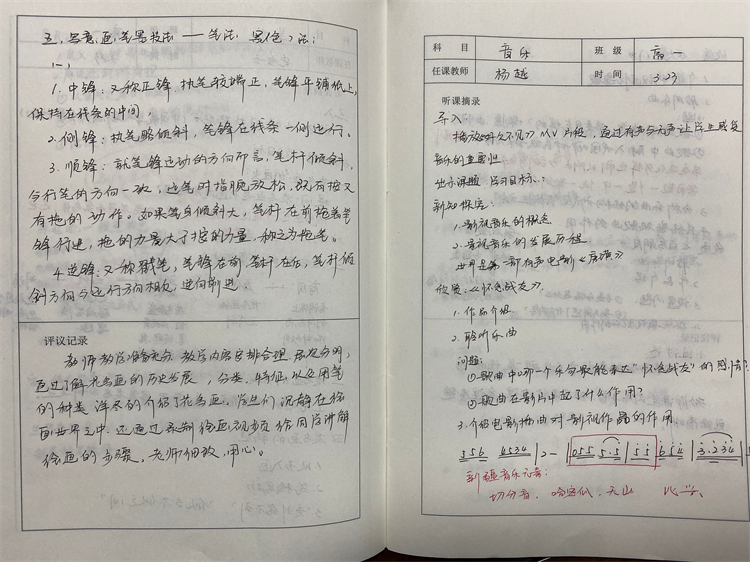 五、写意画笔墨技法——笔法、墨色
(一)
1.中锋:又称正锋,执笔较端正,笔锋平铺纸上,
保持在线条的中间。
2.侧锋:执笔略倾斜,笔锋在线条一侧运行。
3.顺锋:就笔锋运动的方向而言,笔杆倾斜,
与行笔的方向一致,运笔时指腕放松,既有按又
有拖的动作。如果笔身倾斜大,笔杆在前拖着笔
锋行进,拖的力量大于按的力量,称之为拖笔。
4.逆锋:又称戳笔,笔锋在前,笔杆在后,笔杆倾
斜方向与运行方向相反,逆向前进。
评议记录
教师教学准备充分,教学内容安排合理,层次分明,
通过了解花鸟画的历史发展,分类,特征,以及用笔
的种类,详尽的介绍了花鸟画,学生们沉静在绘
画世界之中,还通过录制绘画视频给同学讲解
绘画的步骤,老师细致,用心。
科 目 音乐 班 级 高一
任课教师 杨越 时 间 3.23
听课摘录
导入
播放《好久不见》MV片段,通过有声与无声让学生感受
音乐的重要性
出示课题,学习目标:
新知探究:
1.影视音乐的概念
2.影视音乐的发展历程
世界是第一部有声电影《爵士歌王》
欣赏:《怀念战友》
1.作品介绍
2.聆听乐曲
问题:
①歌曲中哪一个乐句最能表达"怀念战友"的感情?
②歌曲在影片中起了什么作用?
3.介绍电影插曲对影视作品的作用
356 4534 | 2 - | 055 5·5 | 55 654 | 3·234 |
新疆音乐元素:
切分音,哈密瓜,天山 比兴、